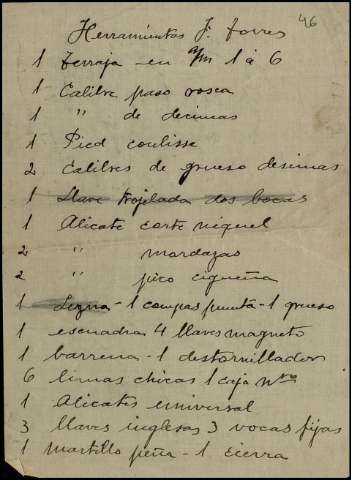 46
Herramientas J. Torres
1 Terraja en m/m 1 á 6
1 Calibre paso rosca
1 " de decimas
1 Pied coulisse
2 Calibres de grueso desimas
1 Llave trojelada dos bocas
1 Alicate corte niquel
2 " mordazas
2 " pico cigueña
1 Legna - 1 compas punta - 1 grueso
1 escuadra 4 llaves magneto
1 barrena - 1 destornillador
6 limas chicas 1 caja
1 Alicates universal
3 llaves inglesas 3 vocas fijas
1 martillo peña - 1 cierra